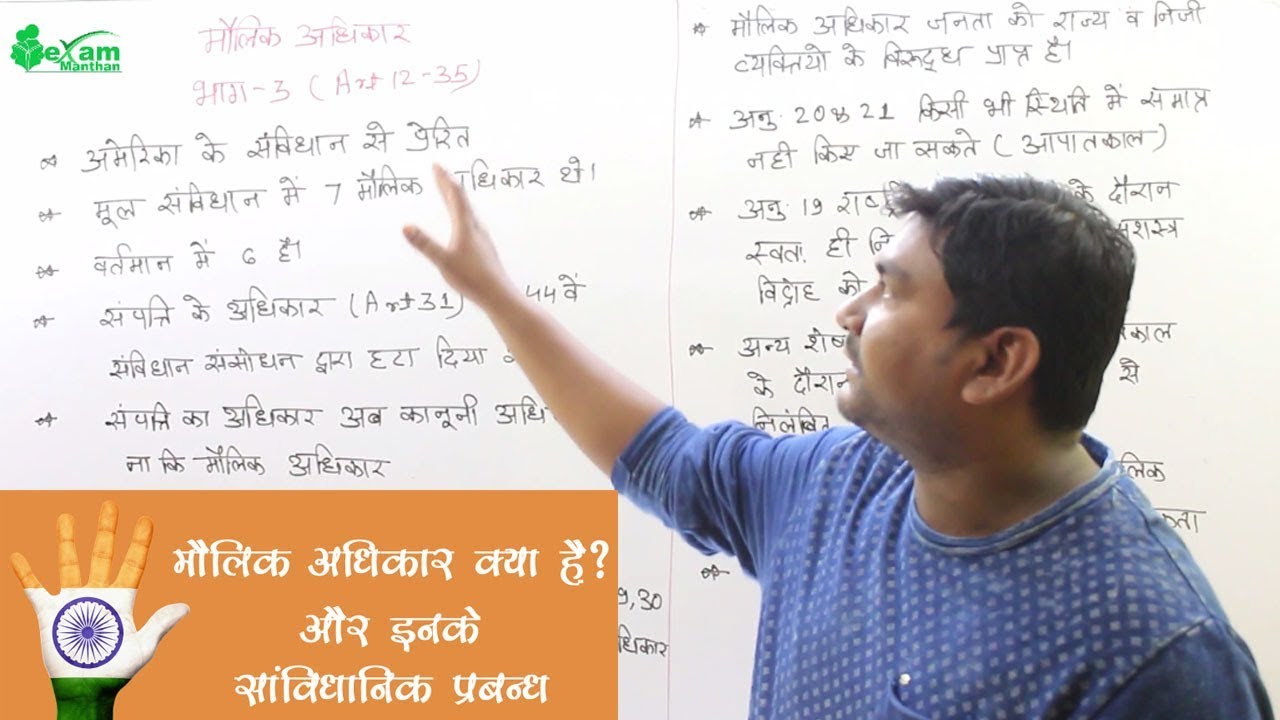 exam
Manthan
मौलिक अधिकार
भाग-3 (Art 12-35)
अमेरिका के संविधान से प्रेरित
मूल संविधान में 7 मौलिक अधिकार थे।
वर्तमान में 6 है।
संपत्ति के अधिकार (Art 31) 44 वें
संविधान संसोधन द्वारा हटा दिया
संपत्ति का अधिकार अब कानूनी अधि
ना कि मौलिक अधिकार
9,30
धिकार
मौलिक अधिकार जनता को राज्य व निजी
व्यक्तियो के विरूद्ध प्राप्त है।
अनु. 20 & 21 किसी भी स्थिति में समाप्त
नही किए जा सकते (आपातकाल)
अनु. 19 राष्ट्रि के दौरान
स्वतः ही नि सशस्त्र
विद्रोह को
अन्य शेष काल
के दौरान से
निलंबित
लिक
कता
मौलिक अधिकार क्या है?
और इनके
सांविधानिक प्रबन्ध